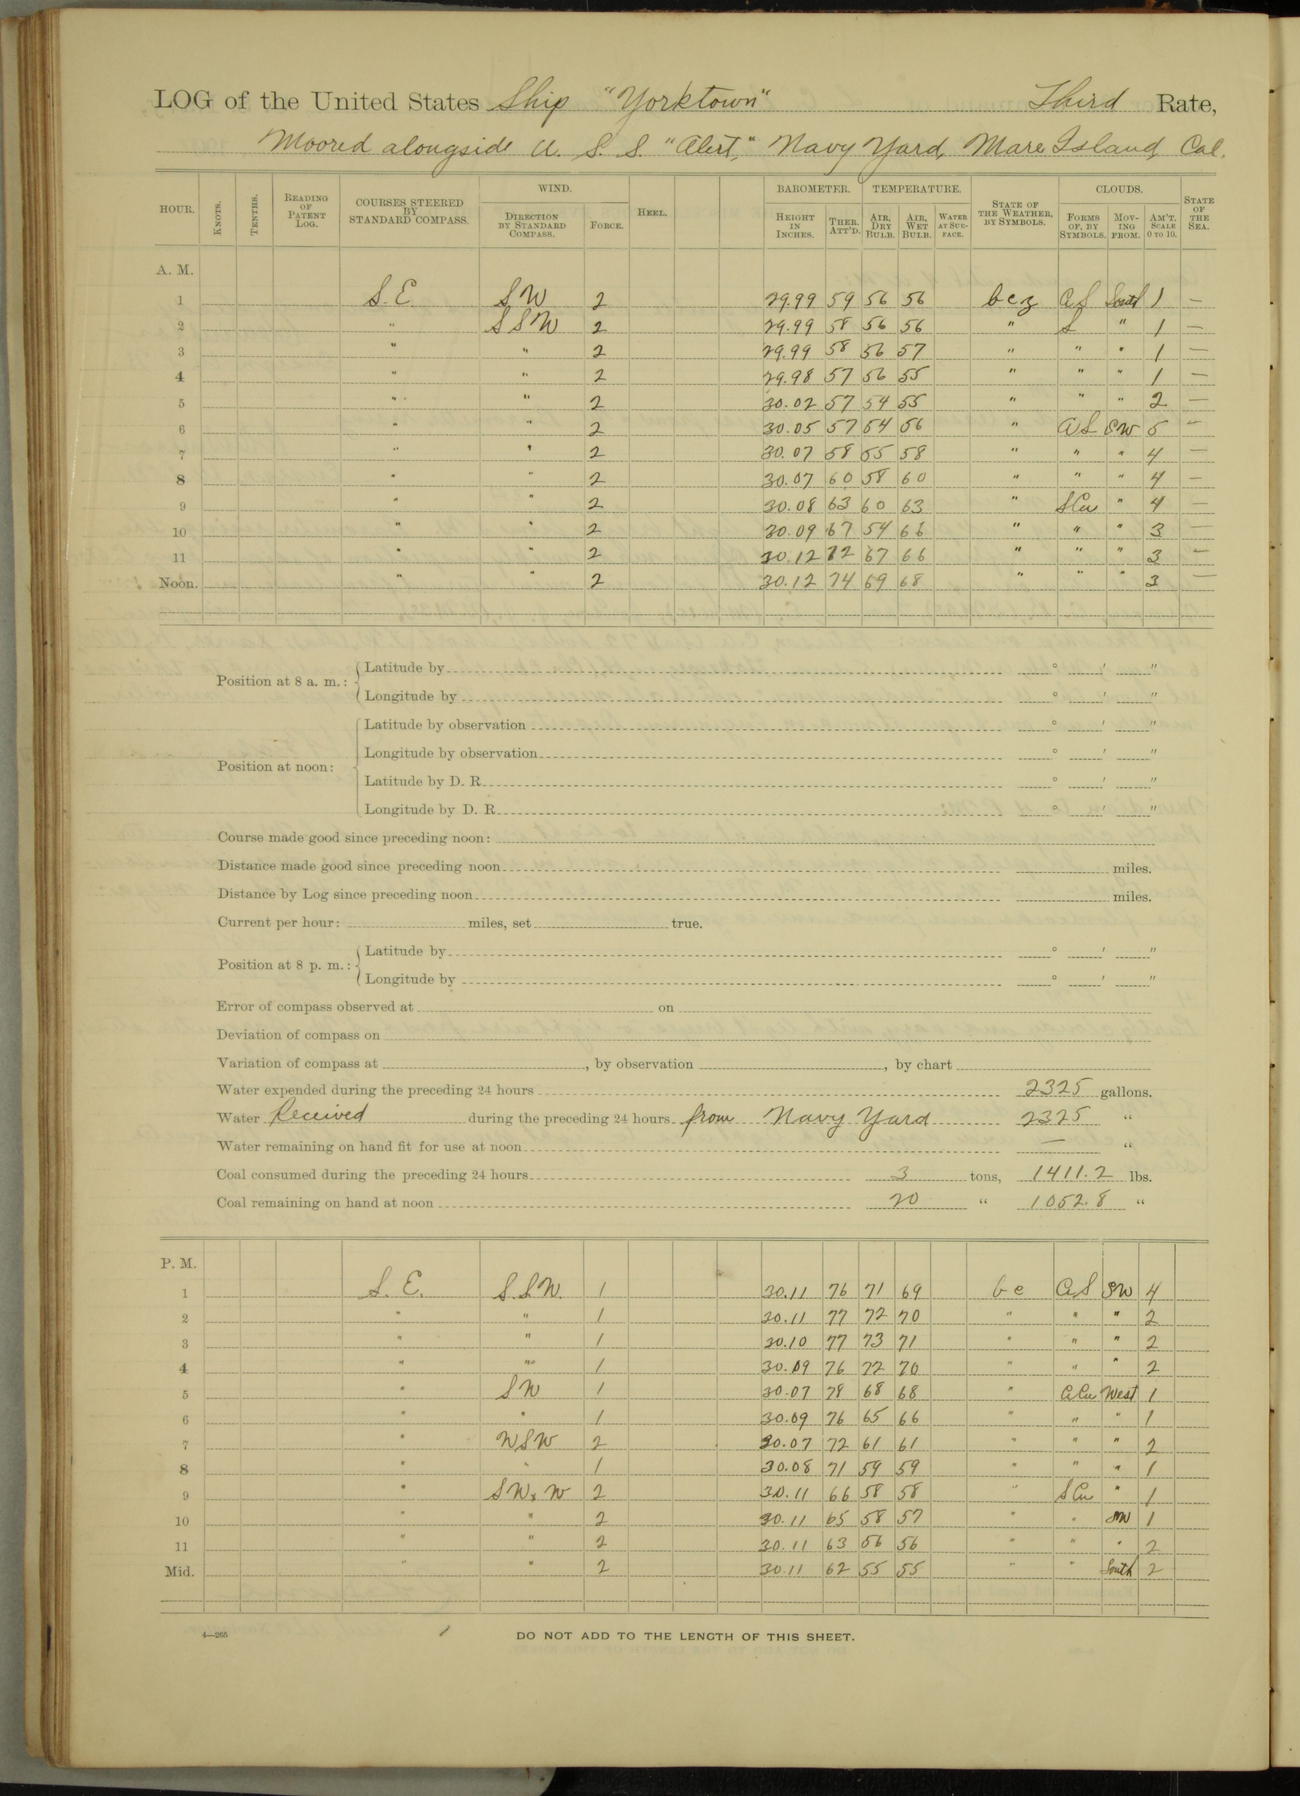 LOG of the United States Ship "Yorktown" Third Rate,
Moored alongside U. S. S. "Alert," Navy Yard, Mare Island, Cal.
HOUR. KNOTS. TENTHS. READING OF PATENT LOG. COURSES STEERED BY STANDARD COMPASS. WIND. DIRECTION BY STANDARD COMPASS. FORCE. HEEL. BAROMETER. HEIGHT IN INCHES. THER. ATT'D. TEMPERATURE. AIR, DRY BULB. AIR, WET BULB. WATER AT SURFACE. STATE OF THE WEATHER, BY SYMBOLS. CLOUDS. FORMS OF, BY SYMBOLS. MOVING FROM. AM'T. SCALE 0 TO 10. STATE OF THE SEA.
A. M.
1 S. E. SW 2 29.99 59 56 56 bcz CS South 1 —
2 " SSW 2 29.99 58 56 56 " S " 1 —
3 " " 2 29.99 58 56 57 " " " 1 —
4 " " 2 29.98 57 56 55 " " " 1 —
5 " " 2 30.02 57 54 55 " " " 2 —
6 " " 2 30.05 57 54 56 " CS SW 5 —
7 " " 2 30.07 58 55 58 " " " 4 —
8 " " 2 30.07 60 58 60 " " " 4 —
9 " " 2 30.08 63 60 63 " SCu " 4 —
10 " " 2 30.09 67 54 66 " " " 3 —
11 " " 2 30.12 72 67 66 " " " 3 —
Noon. " " 2 30.12 74 69 68 " " " 3 —
Position at 8 a. m.: Latitude by ° ' "
Longitude by ° ' "
Position at noon: Latitude by observation ° ' "
Longitude by observation ° ' "
Latitude by D. R. ° ' "
Longitude by D. R. ° ' "
Course made good since preceding noon:
Distance made good since preceding noon miles.
Distance by Log since preceding noon miles.
Current per hour: miles, set true.
Position at 8 p. m.: Latitude by ° ' "
Longitude by ° ' "
Error of compass observed at on
Deviation of compass on
Variation of compass at , by observation , by chart
Water expended during the preceding 24 hours 2325 gallons.
Water Received during the preceding 24 hours from Navy Yard 2325 "
Water remaining on hand fit for use at noon — "
Coal consumed during the preceding 24 hours 3 tons, 1411.2 lbs.
Coal remaining on hand at noon 20 " 1052.8 "
P. M.
1 S. E. S.S.W. 1 30.11 76 71 69 bc CS SW 4
2 " " 1 30.11 77 72 70 " " " 2
3 " " 1 30.10 77 73 71 " " " 2
4 " " 1 30.09 76 72 70 " " " 2
5 " SW 1 30.07 78 68 68 " CCu West 1
6 " " 1 30.09 76 65 66 " " " 1
7 " WSW 2 30.07 72 61 61 " " " 2
8 " " 1 30.08 71 59 59 " " " 1
9 " SW x W 2 30.11 66 58 58 " SCu " 1
10 " " 2 30.11 65 58 57 " " SW 1
11 " " 2 30.11 63 56 56 " " " 2
Mid. " " 2 30.11 62 55 55 " " South 2
4—265
DO NOT ADD TO THE LENGTH OF THIS SHEET.